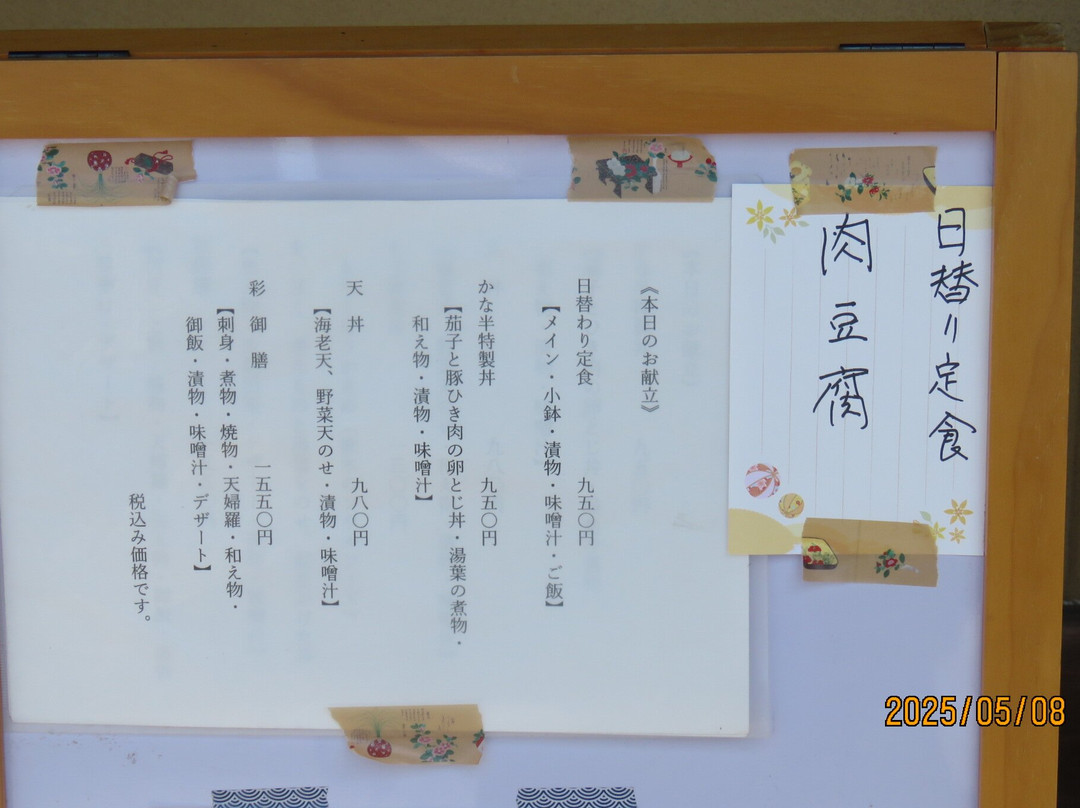 日替り定食
肉豆腐
《本日のお献立》
日替わり定食 九五〇円
【メイン・小鉢・漬物・味噌汁・ご飯】
かな半特製丼 九五〇円
【茄子と豚ひき肉の卵とじ丼・湯葉の煮物・
和え物・漬物・味噌汁】
天丼 九八〇円
【海老天、野菜天のせ・漬物・味噌汁】
彩御膳 一五五〇円
【刺身・煮物・焼物・天婦羅・和え物・
御飯・漬物・味噌汁・デザート】
税込み価格です。
2025/05/08